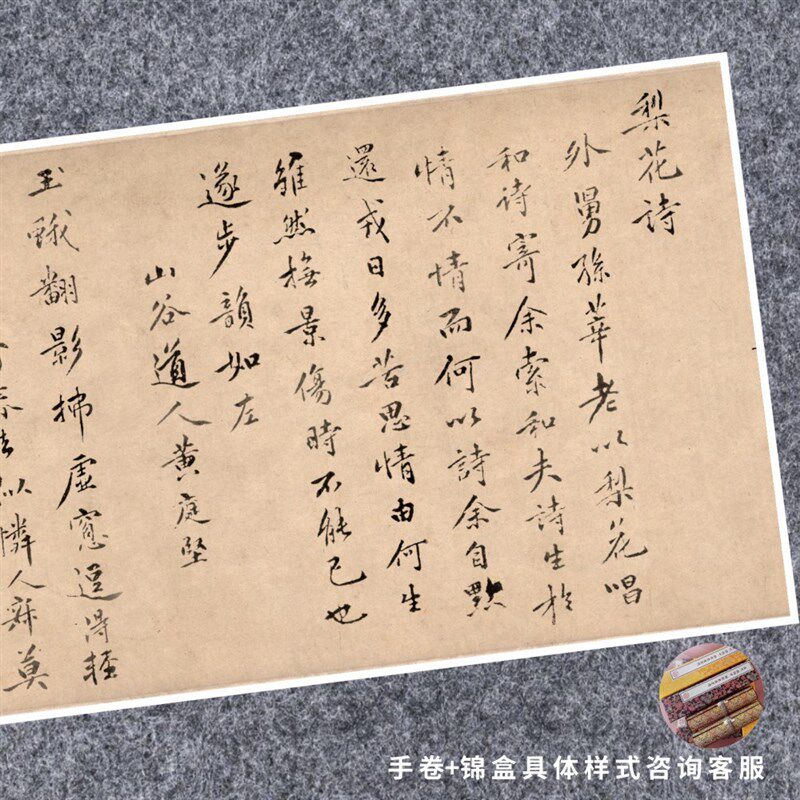 梨花詩
外舅孫莘老以梨花唱
和诗寄余索和夫诗生於
情不情而何以詩余自黔
還戎日多苦思情由何生
雖然撫景傷時不能已也
遂步韻如左
山谷道人黄庭堅
玉蛾翻影拂虚窓逗得
以憐人寂莫
手卷+锦盒具体样式咨询客服